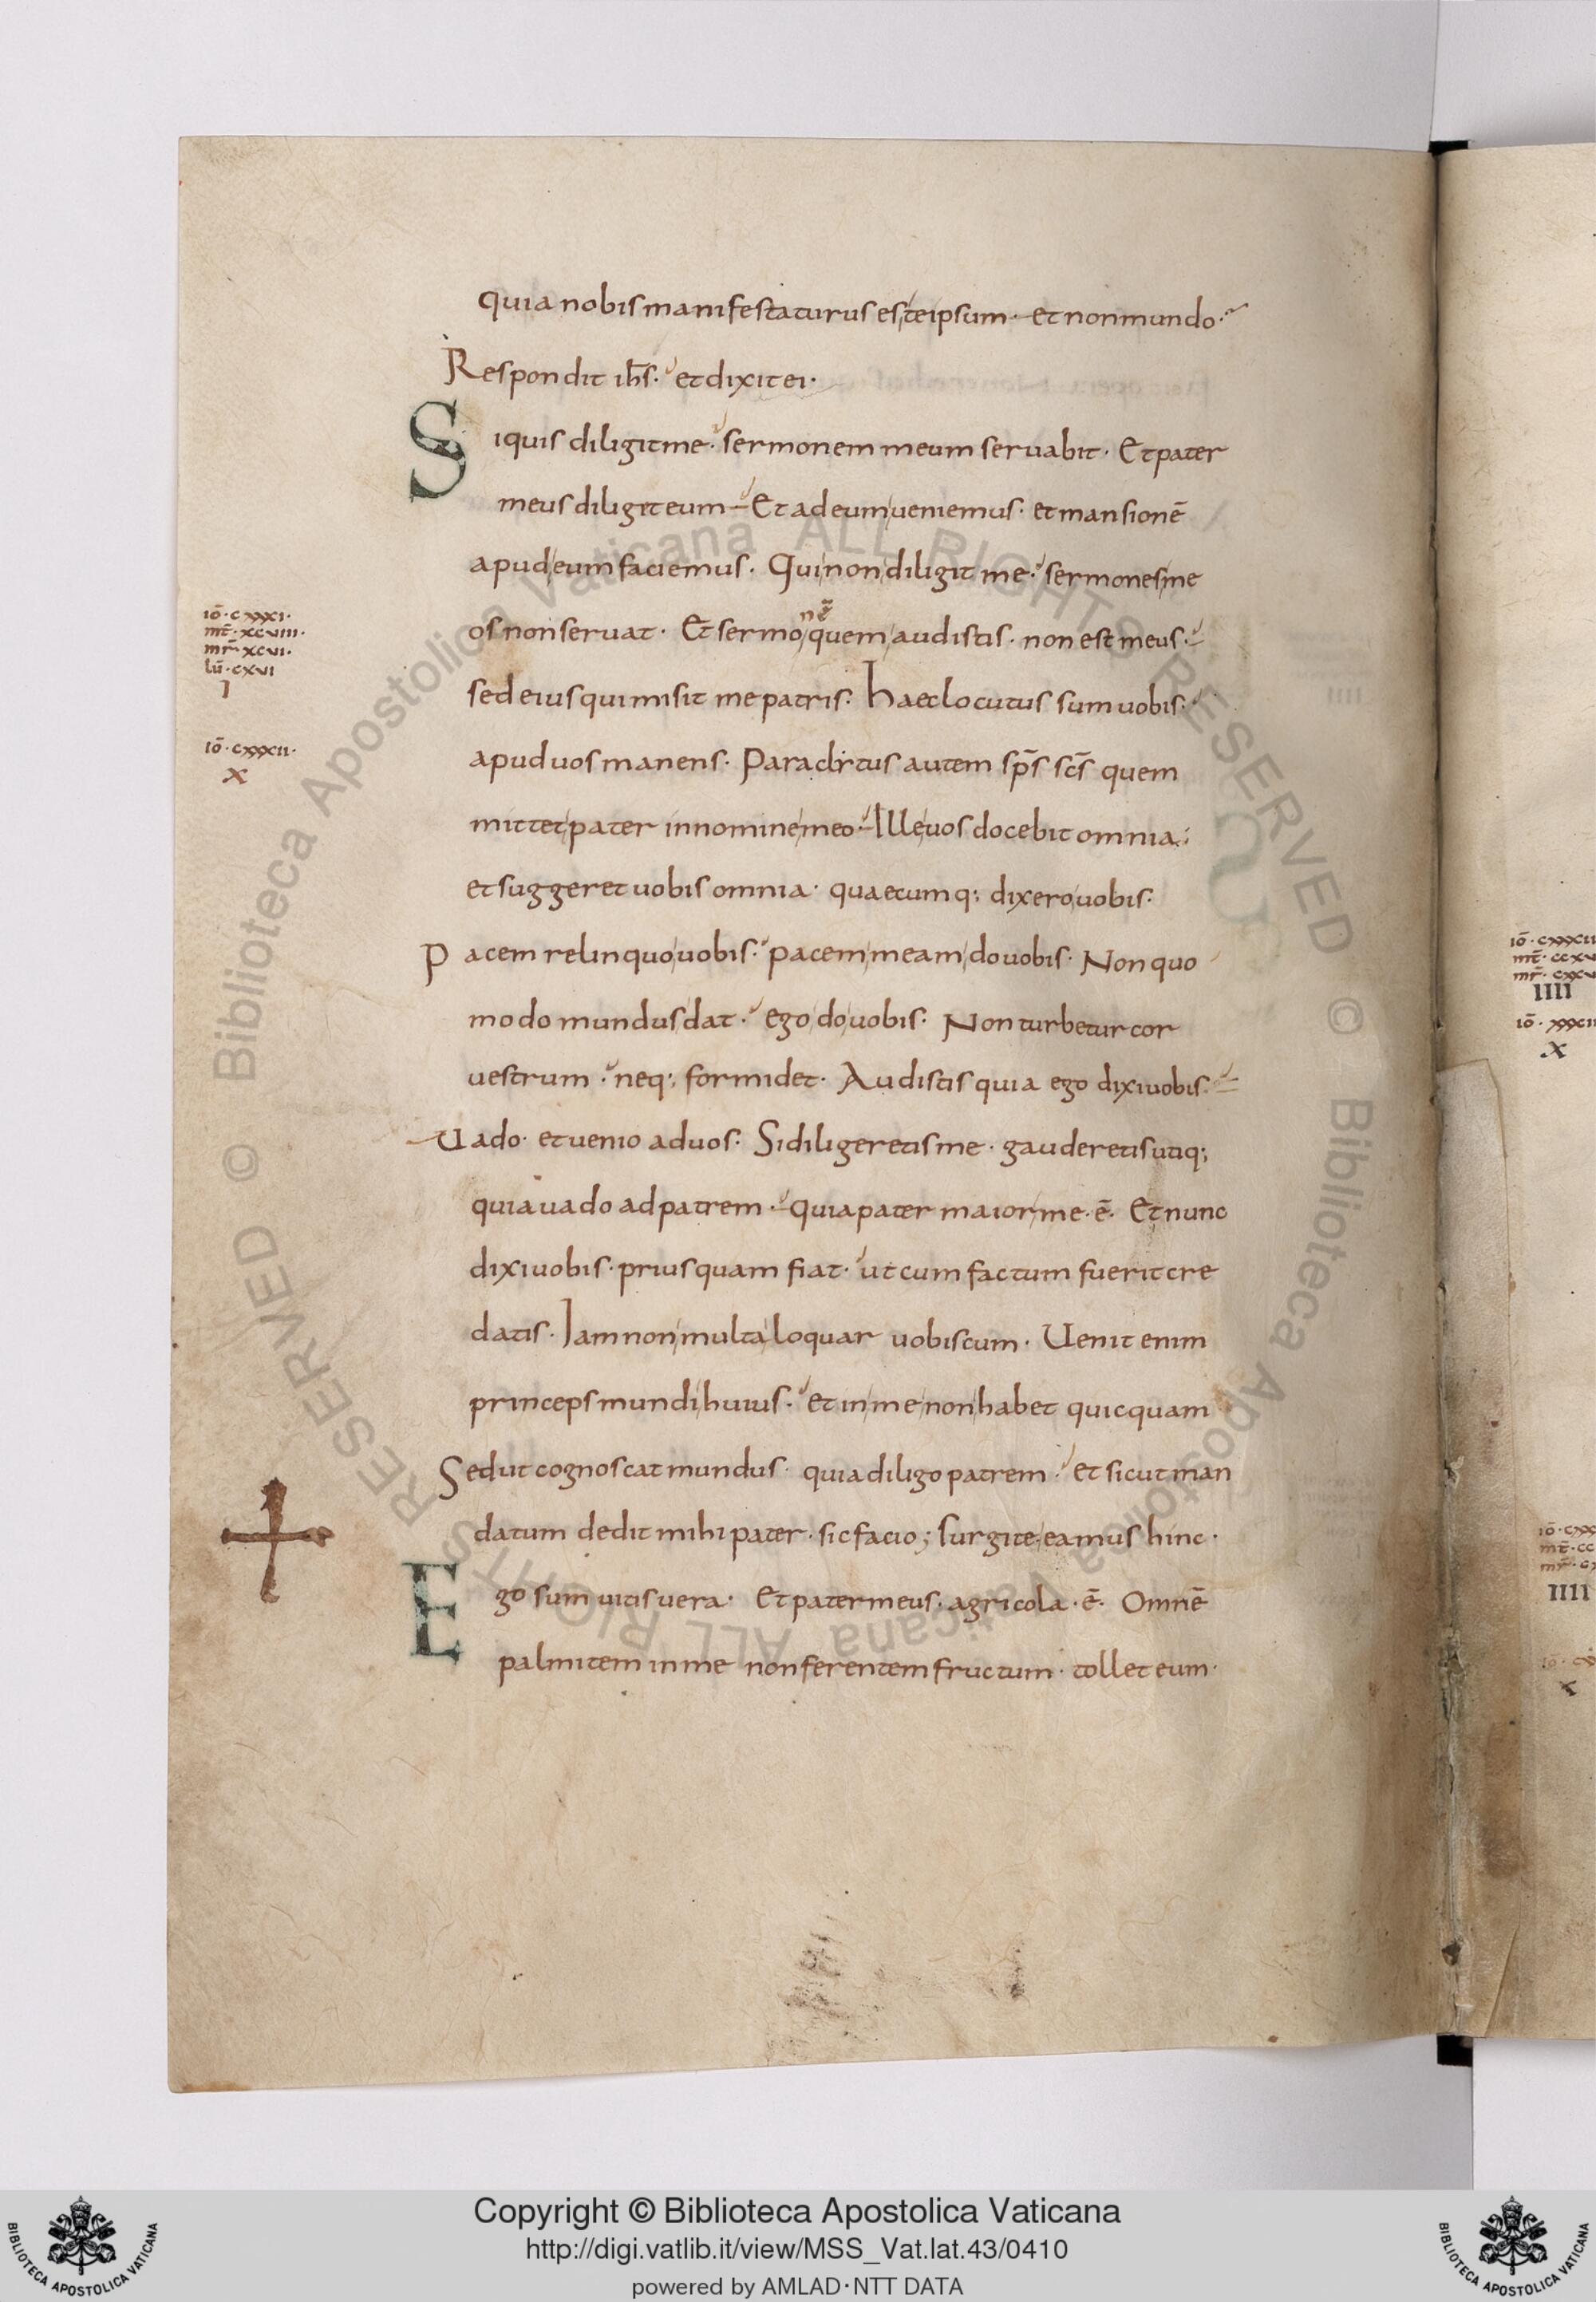 quia nobis manifestaturus es teipsum · et non mundo ·
Respondit ih̄s · et dixit ei ·
Si quis diligit me · sermonem meum seruabit · Et pater
meus diliget eum – Et ad eum ueniemus · et mansionē
apud eum faciemus · Qui non diligit me · sermones me
os non seruat · Et sermo quem audistis · non est meus ·
iō · cxxxi ·
mt̄ · xcviii ·
mr̄ · xcvi ·
lū · cxvi
sed eius qui misit me patris · haec locutus sum uobis ·
iō · cxxxii ·
x
apud uos manens · Paraclitus autem sp̄s sc̄s quem
mittet pater in nomine meo · Ille uos docebit omnia ·
et suggeret uobis omnia · quaecumq; dixero uobis ·
Pacem relinquo uobis · pacem meam do uobis · Non quo
modo mundus dat · ego do uobis · Non turbetur cor
uestrum · neq; formidet · Audistis quia ego dixi uobis ·
Uado · et uenio ad uos · Si diligeretis me · gauderetis utiq;
quia uado ad patrem · quia pater maior me · ē · Et nunc
dixi uobis · prius quam fiat · ut cum factum fuerit cre
datis · Iam non multa loquar uobiscum · Uenit enim
princeps mundi huius · et in me non habet quicquam
Sed ut cognoscat mundus · quia diligo patrem · et sicut man
datum dedit mihi pater · sic facio ; surgite eamus hinc ·
Ego sum uitis uera · Et pater meus · agricola · ē · Omnē
palmitem in me non ferentem fructum · tollet eum ·
IIII
x
IIII
© Biblioteca Apostolica Vaticana ALL RIGHTS RESERVED
© Biblioteca Apostolica Vaticana ALL RIGHTS RESERVED
BIBLIOTECA APOSTOLICA VATICANA
Copyright © Biblioteca Apostolica Vaticana
http://digi.vatlib.it/view/MSS_Vat.lat.43/0410
powered by AMLAD·NTT DATA
BIBLIOTECA APOSTOLICA VATICANA